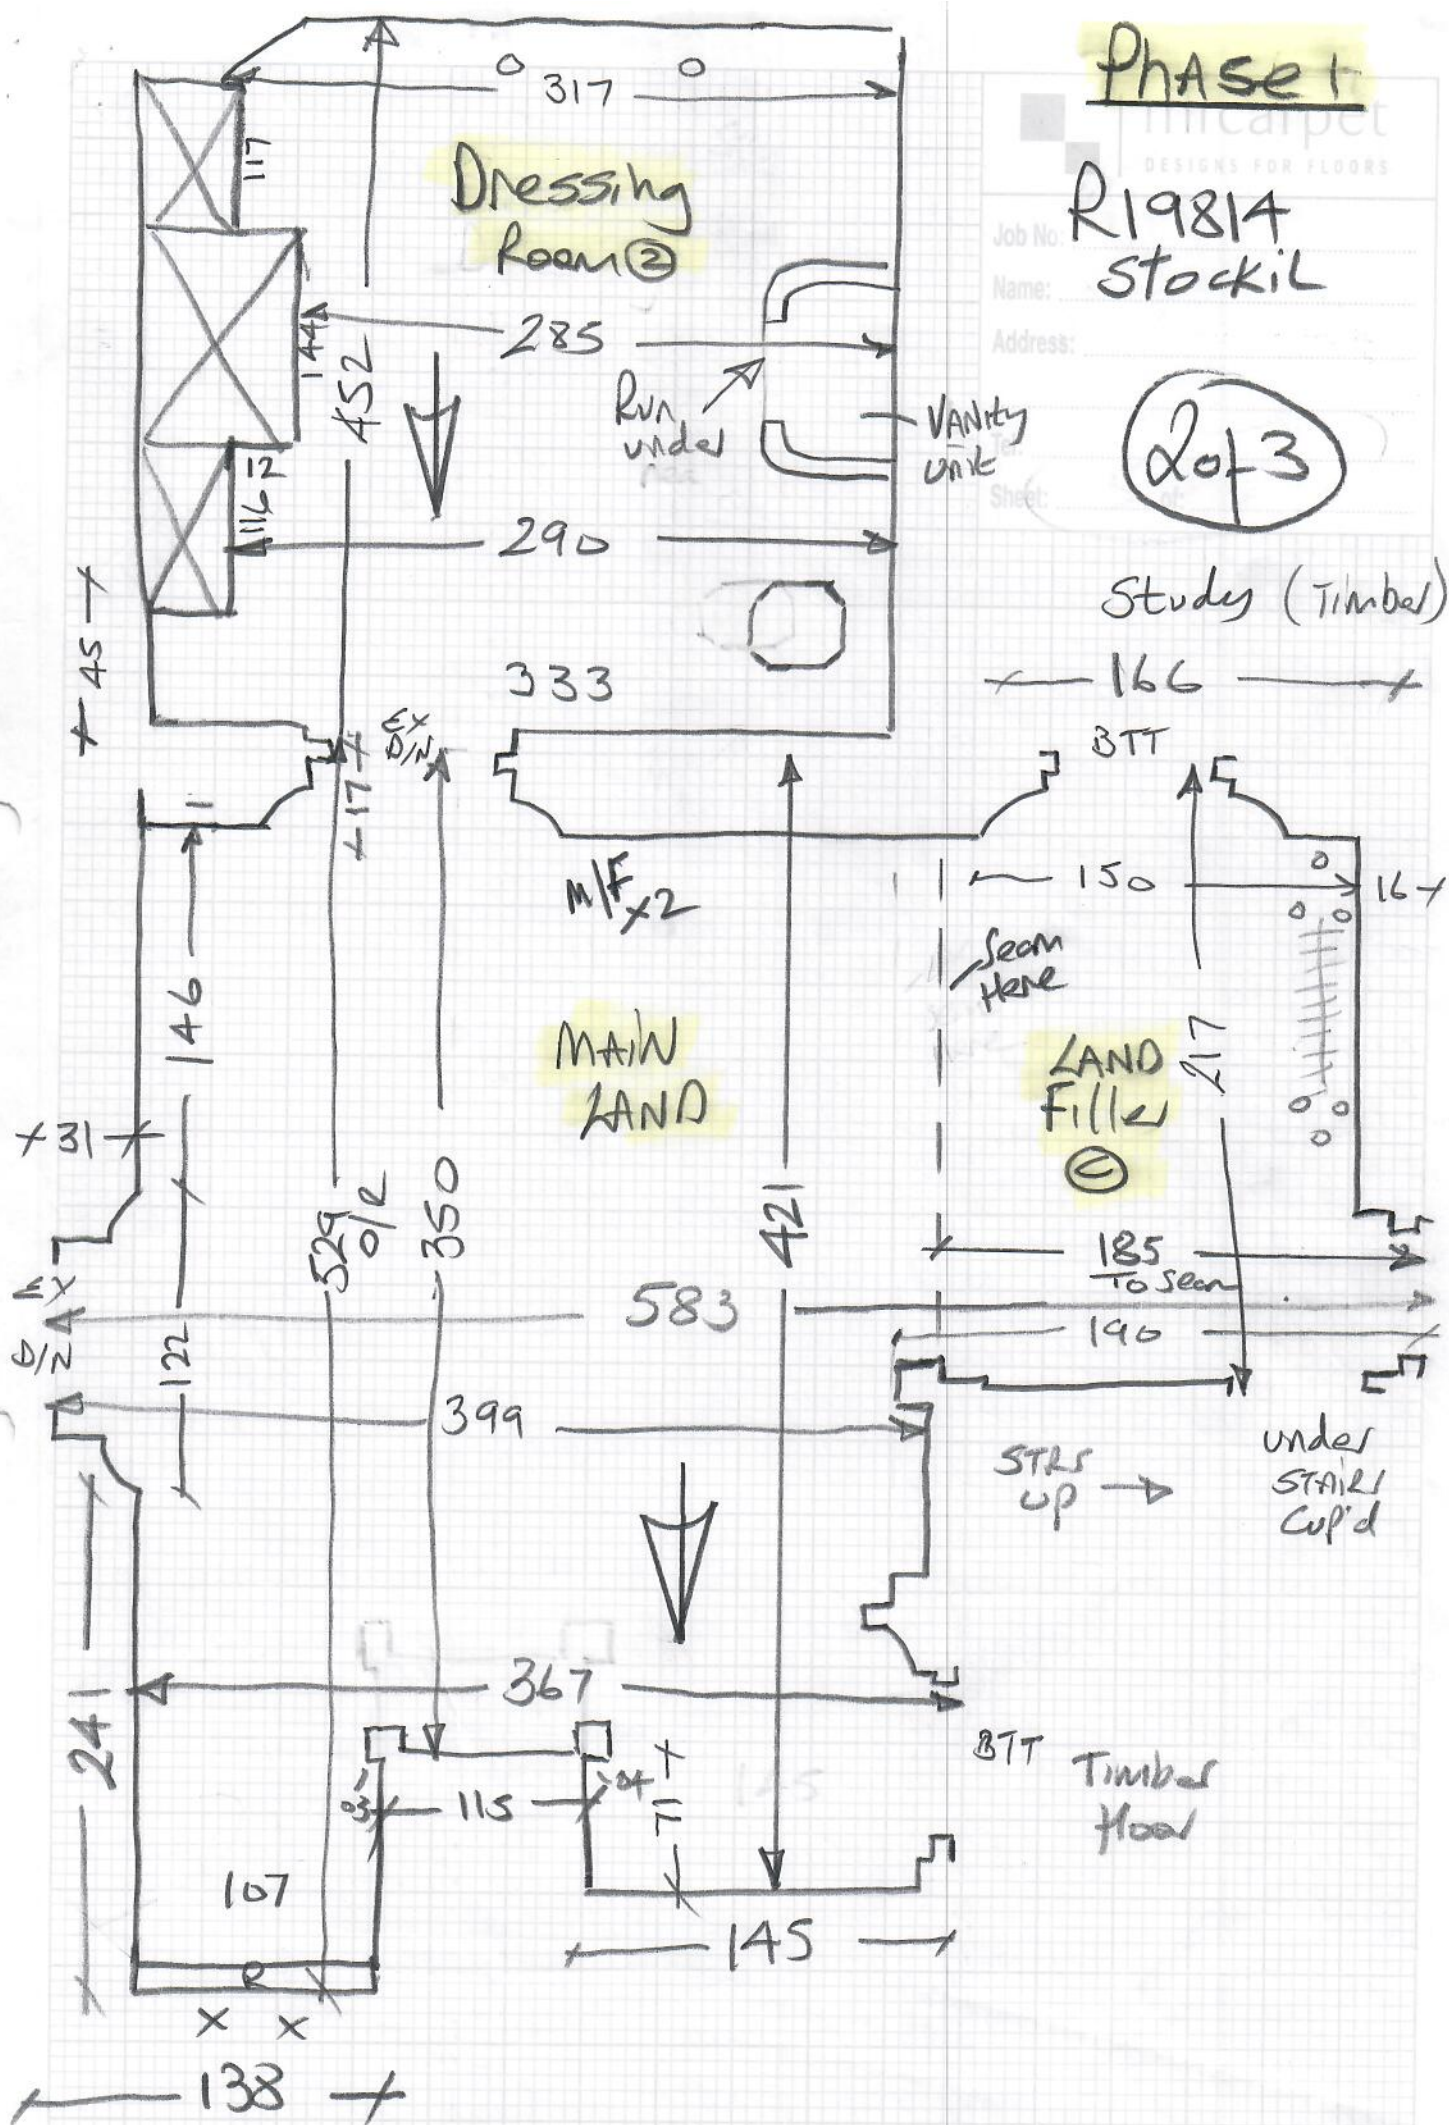 Phase 1
mrcarpet
DESIGNS FOR FLOORS
Job No: R19814
Name: Stockil
Address:
Tel:
Sheet: of:
2 of 3
317
117
Dressing
Room ②
144
285
452
Run
under
Vanity
unit
12
116
290
45
333
Study (Timber)
166
EX
D/N
17
BTT
M/F x2
150
16
Seam
Here
146
MAIN
LAND
LAND
Filler
Ⓒ
217
31
529
O/R
350
421
185
To Seam
EX
D/N
583
190
122
399
STRS
UP
under
STAIRS
Cup'd
241
367
BTT
Timber
floor
03
115
04
71
107
R
X X
145
138